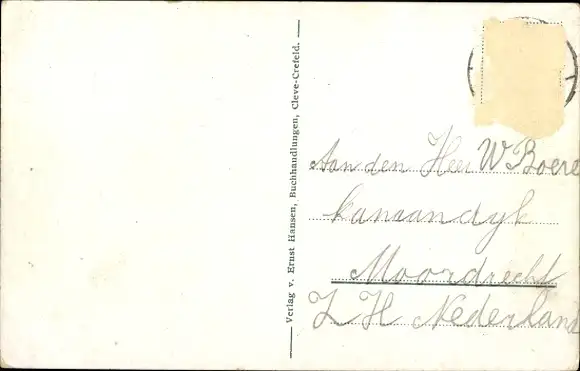 Verlag v. Ernst Hansen, Buchhandlungen, Cleve-Crefeld.
Aan den Heer W Boere
Moordrecht
Z H Nederland